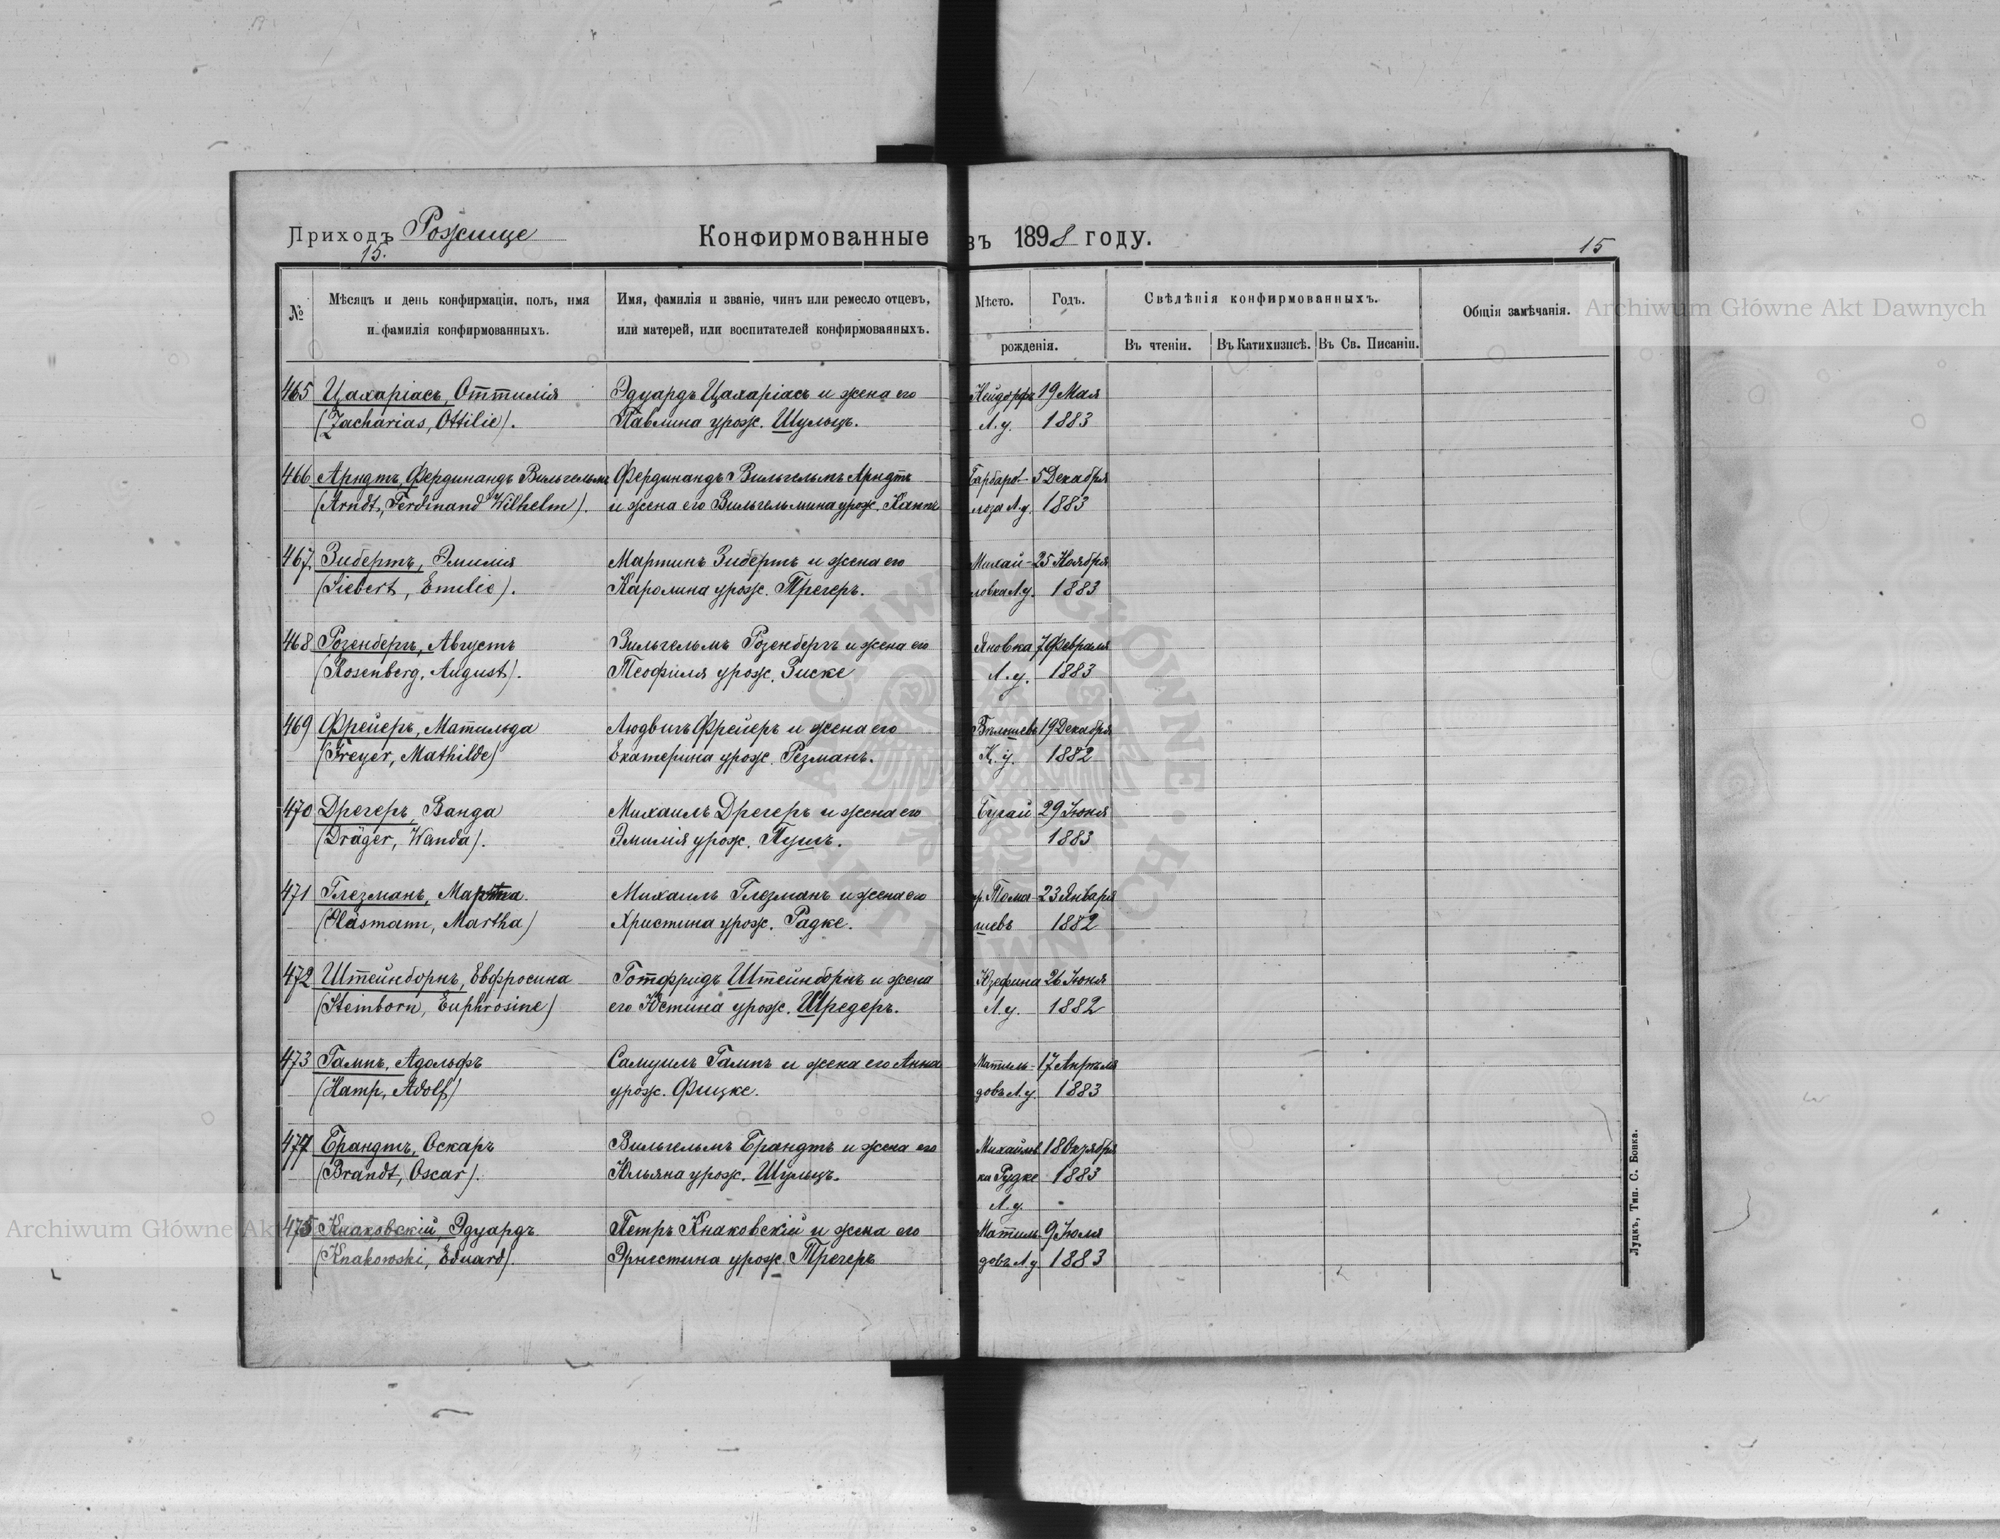 Приходъ Рожище
15.
Конфирмованные въ 1898 году.
15
№
Мѣсяцъ и день конфирмаціи, полъ, имя
и фамилія конфирмованныхъ.
Имя, фамилія и званіе, чинъ или ремесло отцевъ,
или матерей, или воспитателей конфирмованныхъ.
Мѣсто. Годъ.
рожденія.
Свѣдѣнія конфирмованныхъ.
Въ чтеніи. Въ Катихизисѣ. Въ Св. Писаніи.
Общія замѣчанія.
465 Цахаріасъ, Оттилія Эдуардъ Цахаріасъ и жена его Нейдорфъ 19 Мая
(Zacharias, Ottilie). Павлина урож. Шульцъ. Л.у. 1883
466 Арндтъ, Фердинандъ Вильгельмъ Фердинандъ Вильгельмъ Арндтъ 5 Декабря
(Arndt, Ferdinand Wilhelm). и жена его Вильгельмина урож. Кантъ Л.у. 1883
467 Зибертъ, Эмилія Мартинъ Зибертъ и жена его Михай- 25 Ноября
(Siebert, Emilie). Каролина урож. Трегеръ. ловка Л.у. 1883
468 Розенбергъ, Августъ Вильгельмъ Розенбергъ и жена его Яновка 7 Февраля
(Rosenberg, August). Теофиля урож. Зиске Л.у. 1883
469 Фрейеръ, Матильда Людвигъ Фрейеръ и жена его 19 Декабря
(Freyer, Mathilde) Екатерина урож. Резманъ. К.у. 1882
470 Дрегеръ, Ванда Михаилъ Дрегеръ и жена его Бугай 29 Іюня
(Dräger, Wanda). Эмилія урож. Пушъ. 1883
471 Глезманъ, Марта. Михаилъ Глезманъ и жена его Тома- 23 Января
(Gläsmann, Martha) Христина урож. Радке. шевъ 1882
472 Штейнборнъ, Евфросина Готфридъ Штейнборнъ и жена Юзефина 26 Іюня
(Steinborn, Euphrosine) его Юстина урож. Шредеръ. Л.у. 1882
473 Гампъ, Адольфъ Самуилъ Гампъ и жена его Анна Матиль- 17 Апрѣля
(Hamp, Adolf) урож. Фицке. довъ Л.у. 1883
474 Брандтъ, Оскаръ Вильгельмъ Брандтъ и жена его Михайлов 18 Октября
(Brandt, Oscar). Юльяна урож. Шульцъ. ка Рудке 1883
Л.у.
475 Кнаковскій, Эдуардъ Петръ Кнаковскій и жена его Матиль- 9 Іюля
(Knakowski, Eduard). Эрнестина урож. Трегеръ довъ Л.у. 1883
Луцкъ, Тип. С. Бонка.
Archiwum Główne Akt Dawnych
Archiwum Główne Akt Dawnych